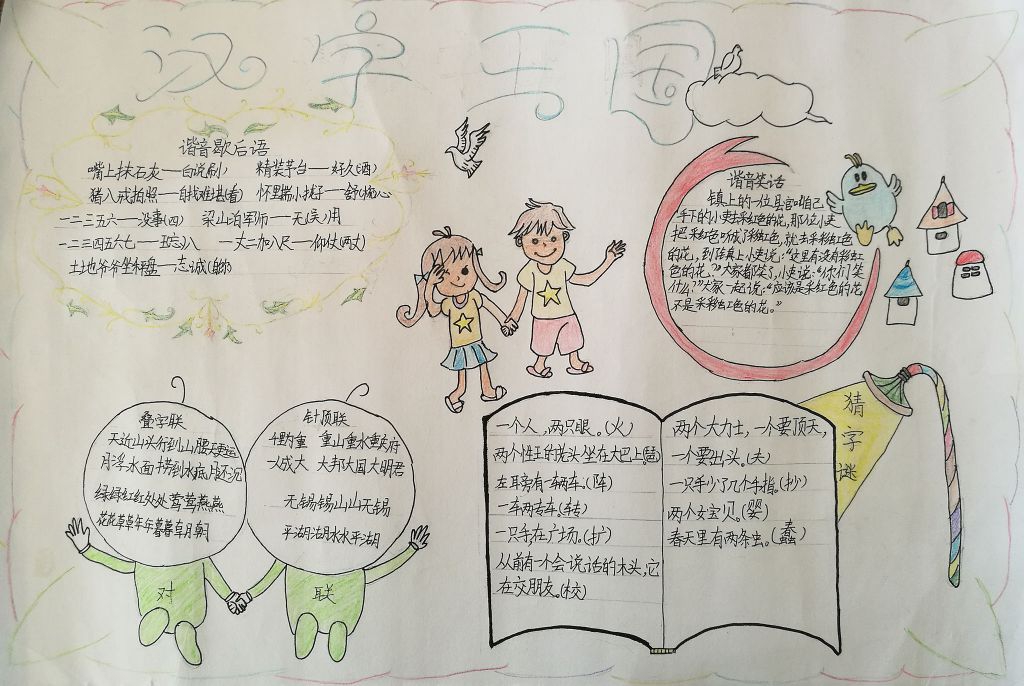 汉字王国
谐音歇后语
嘴上抹石灰——白说(刷) 精装茅台——好久(酒)
猪八戒拍照——自找难堪(看) 怀里揣小梳子——舒(梳)心
一二三五六——没事(四) 梁山泊军师——无(吴)用
一二三四五六七——王(忘)八 一丈二加八尺——仰仗(两丈)
土地爷爷坐神盘——志诚
谐音笑话
镇上的一位县官叫自己
手下的小吏去采红色的花,那位小吏
把采红色听成了彩红色,就去采彩红色
的花,到街上小吏说:“这里有没有彩红
色的花。”大家都笑了,小吏说:“你们笑
什么?”大家一起说:“应该是采红色的花
不是采彩红色的花。”
叠字联
天近山头行到山腰天更远
月浮水面捞到水底月还沉
绿绿红红处处莺莺燕燕
花花草草年年暮暮朝朝
针顶联
千里为重 重山重水重庆府
一人成大 大邦大国大明君
无锡锡山山无锡
平湖湖水水平湖
对
联
猜字谜
一个人,两只眼。(火)
两个姓王的光头坐在大巴上。(琶)
左耳旁有一辆车。(阵)
一车两专车。(转)
一只手在广场。(扩)
从前有一个会说话的木头,它
在交朋友。(校)
两个大力士,一个要顶天,
一个要出头。(夫)
一只手少了几个手指。(抄)
两个女宝贝。(婴)
春天里有两条虫。(蠢)